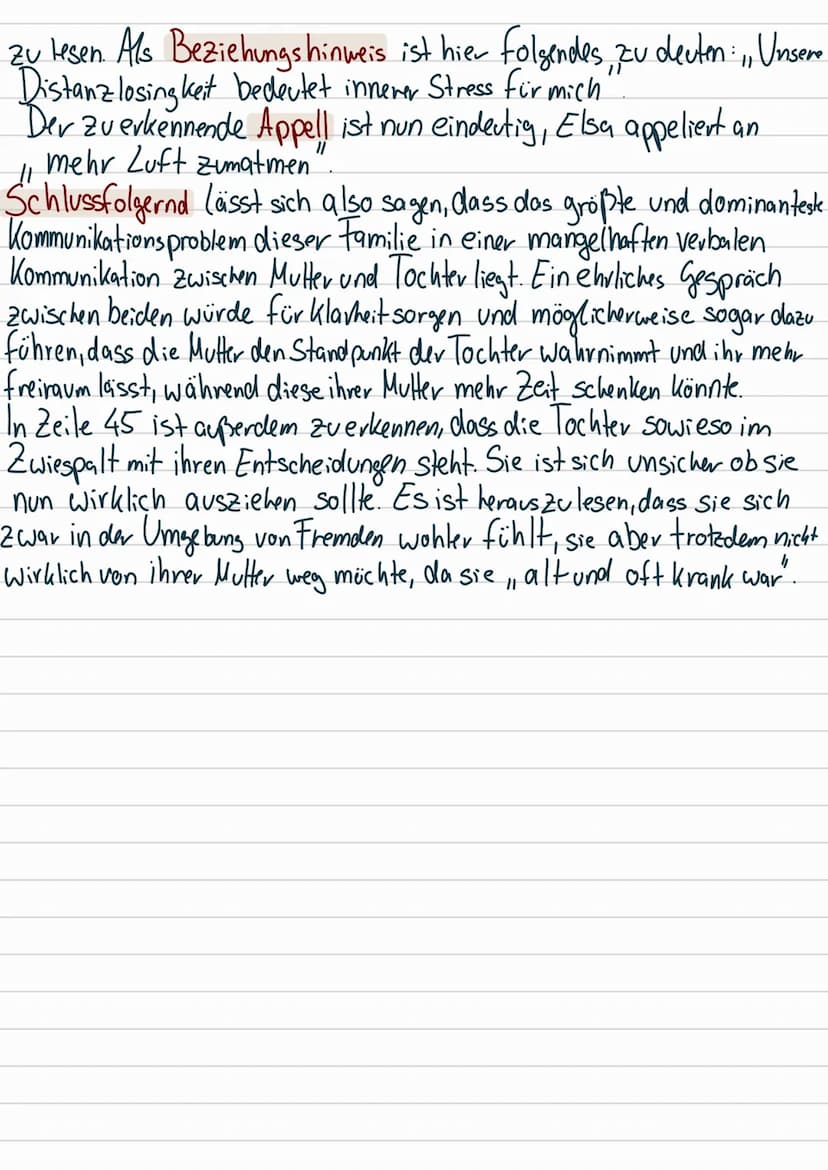 zu lesen. Als Beziehungshinweis ist hier folgendes zu deuten: „Unsere
Distanzlosingkeit bedeutet innerer Stress für mich".
Der zu erkennende Appell ist nun eindeutig, Elsa appeliert an
„mehr Luft zum atmen".
Schlussfolgernd lässt sich also sagen, dass das größte und dominanteste
Kommunikationsproblem dieser Familie in einer mangelhaften verbalen
Kommunikation zwischen Mutter und Tochter liegt. Ein ehrliches Gespräch
zwischen beiden würde für Klarheit sorgen und möglicherweise sogar dazu
führen, dass die Mutter den Standpunkt der Tochter wahrnimmt und ihr mehr
freiraum lässt, während diese ihrer Mutter mehr Zeit schenken könnte.
In Zeile 45 ist außerdem zu erkennen, dass die Tochter sowieso im
Zwiespalt mit ihren Entscheidungen steht. Sie ist sich unsicher ob sie
nun wirklich ausziehen sollte. Es ist heraus zu lesen, dass sie sich
zwar in der Umgebung von Fremden wohler fühlt, sie aber trotzdem nicht
wirklich von ihrer Mutter weg möchte, da sie „alt und oft krank war".